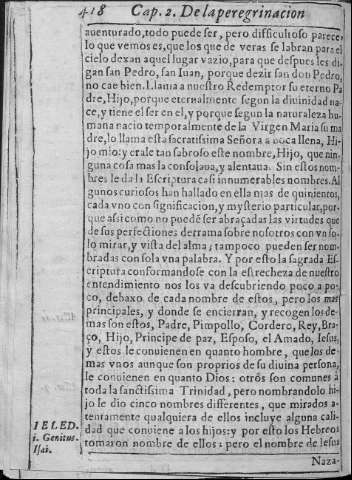 418 Cap. 2. De la peregrinacion
auenturado, todo puede ser, pero dificultoso parece,
lo que vemos es, que los que de veras se labran para el
cielo dexan aquel lugar vazio, para que despues les di-
gan san Pedro, san Iuan, porque dezir san don Pedro,
no cae bien. Llama a nuestro Redemptor su eterno Pa
dre, Hijo, porque eternalmente segun la diuinidad na-
ce, y tiene el ser en el, y porque segun la naturaleza hu-
mana nacio temporalmente de la Virgen Maria su ma
dre, lo llama esta sacratissima Señora a boca llena, Hi-
jo mio: y erale tan sabroso este nombre, Hijo, que nin-
guna cosa mas la consolaua, y alentaua. Sin estos nom-
bres le da la Escriptura casi innumerables nombres. Al
gunos curiosos han hallado en ella mas de quinientos,
cada vno con significacion, y mysterio particular, por-
que assi como no puedē ser abraçadas las virtudes que
de sus perfectiones derrama sobre nosotros con vn so-
lo mirar, y vista del alma, tampoco pueden ser nom-
bradas con sola vna palabra. Y por esto la sagrada Es-
criptura conformandose con la estrecheza de nuestro
entendimiento nos los va descubriendo poco a po-
co, debaxo de cada nombre de estos, pero los mas
principales, y donde se encierran, y recogen los de-
mas son estos, Padre, Pimpollo, Cordero, Rey, Bra-
ço, Hijo, Principe de paz, Esposo, el Amado, Iesus,
y estos le conuienen en quanto hombre, que los de-
mas vnos aunque son proprios de su diuina persona,
le conuienen en quanto Dios: otros son comunes a
toda la sanctissima Trinidad, pero nombrandolo hi-
jo le dio cinco nombres differentes, que mirados a-
tentamente qualquiera de ellos incluye alguna cali-
dad que conuiene a los hijos: y por esto los Hebreos
tomaron nombre de ellos: pero el nombre de Iesus
Naza-
IELED.
i. Genitus.
Isai.